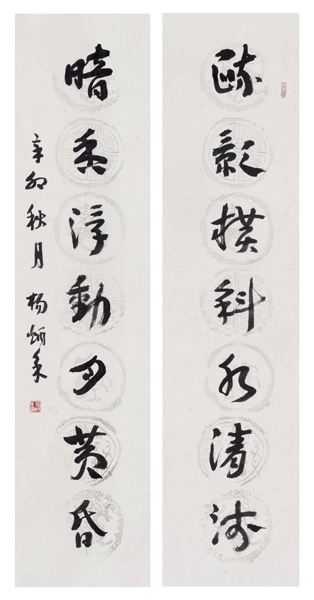 疏影横斜水清浅
暗香浮動月黄昏
辛卯秋月 楊炳